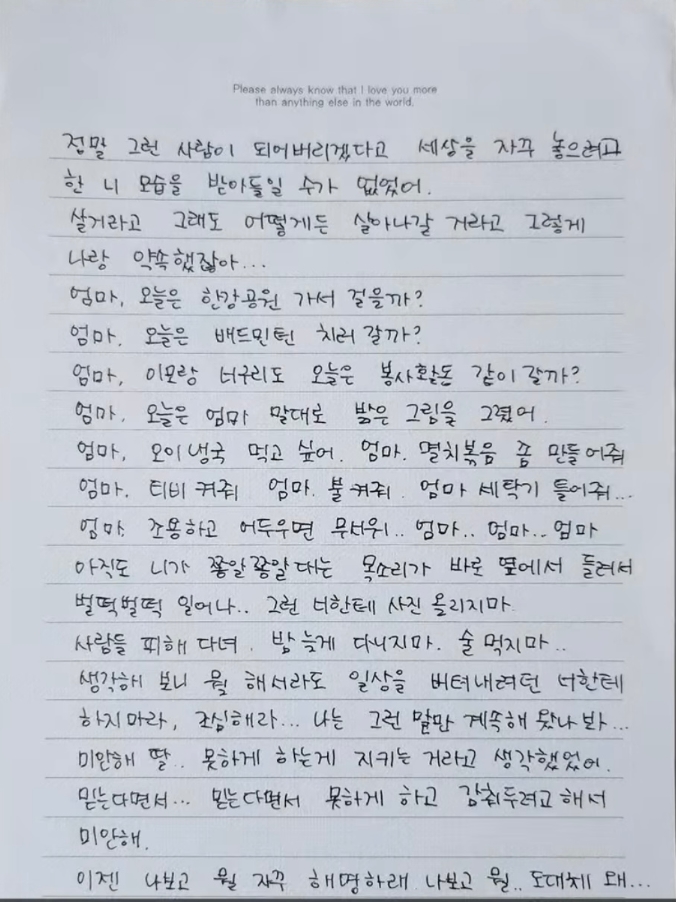 Please always know that I love you more
than anything else in the world.
정말 그런 사람이 되어버리겠다고 세상을 자꾸 놓으려고
한 니 모습을 받아들일 수가 없었어.
살거라고 그래도 어떻게든 살아나갈 거라고 그렇게
나랑 약속했잖아...
엄마, 오늘은 한강공원 가서 걸을까?
엄마. 오늘은 배드민턴 치러 갈까?
엄마, 이모랑 너구리도 오늘은 봉사활동 같이 갈까?
엄마. 오늘은 엄마 말대로 밝은 그림을 그렸어.
엄마, 오이냉국 먹고 싶어. 엄마. 멸치볶음 좀 만들어줘
엄마. 티비 켜줘 엄마. 불켜줘. 엄마 세탁기 틀어줘...
엄마. 조용하고 어두우면 무서워.. 엄마.. 엄마... 엄마
아직도 니가 쫑알쫑알 대는 목소리가 바로 옆에서 들려서
벌떡벌떡 일어나.. 그런 너한테 사진 올리지마.
사람들 피해 다녀. 밤 늦게 다니지마. 술 먹지마..
생각해 보니 뭘 해서라도 일상을 버텨내려던 너한테
하지마라, 조심해라... 나는 그런 말만 계속해 왔나 봐...
미안해 딸.. 못하게 하는게 지키는 거라고 생각했었어.
믿는다면서... 믿는다면서 못하게 하고 감춰두려고 해서
미안해.
이젠 나보고 뭘 자꾸 해명하래 나보고 뭘.. 도대체 왜...